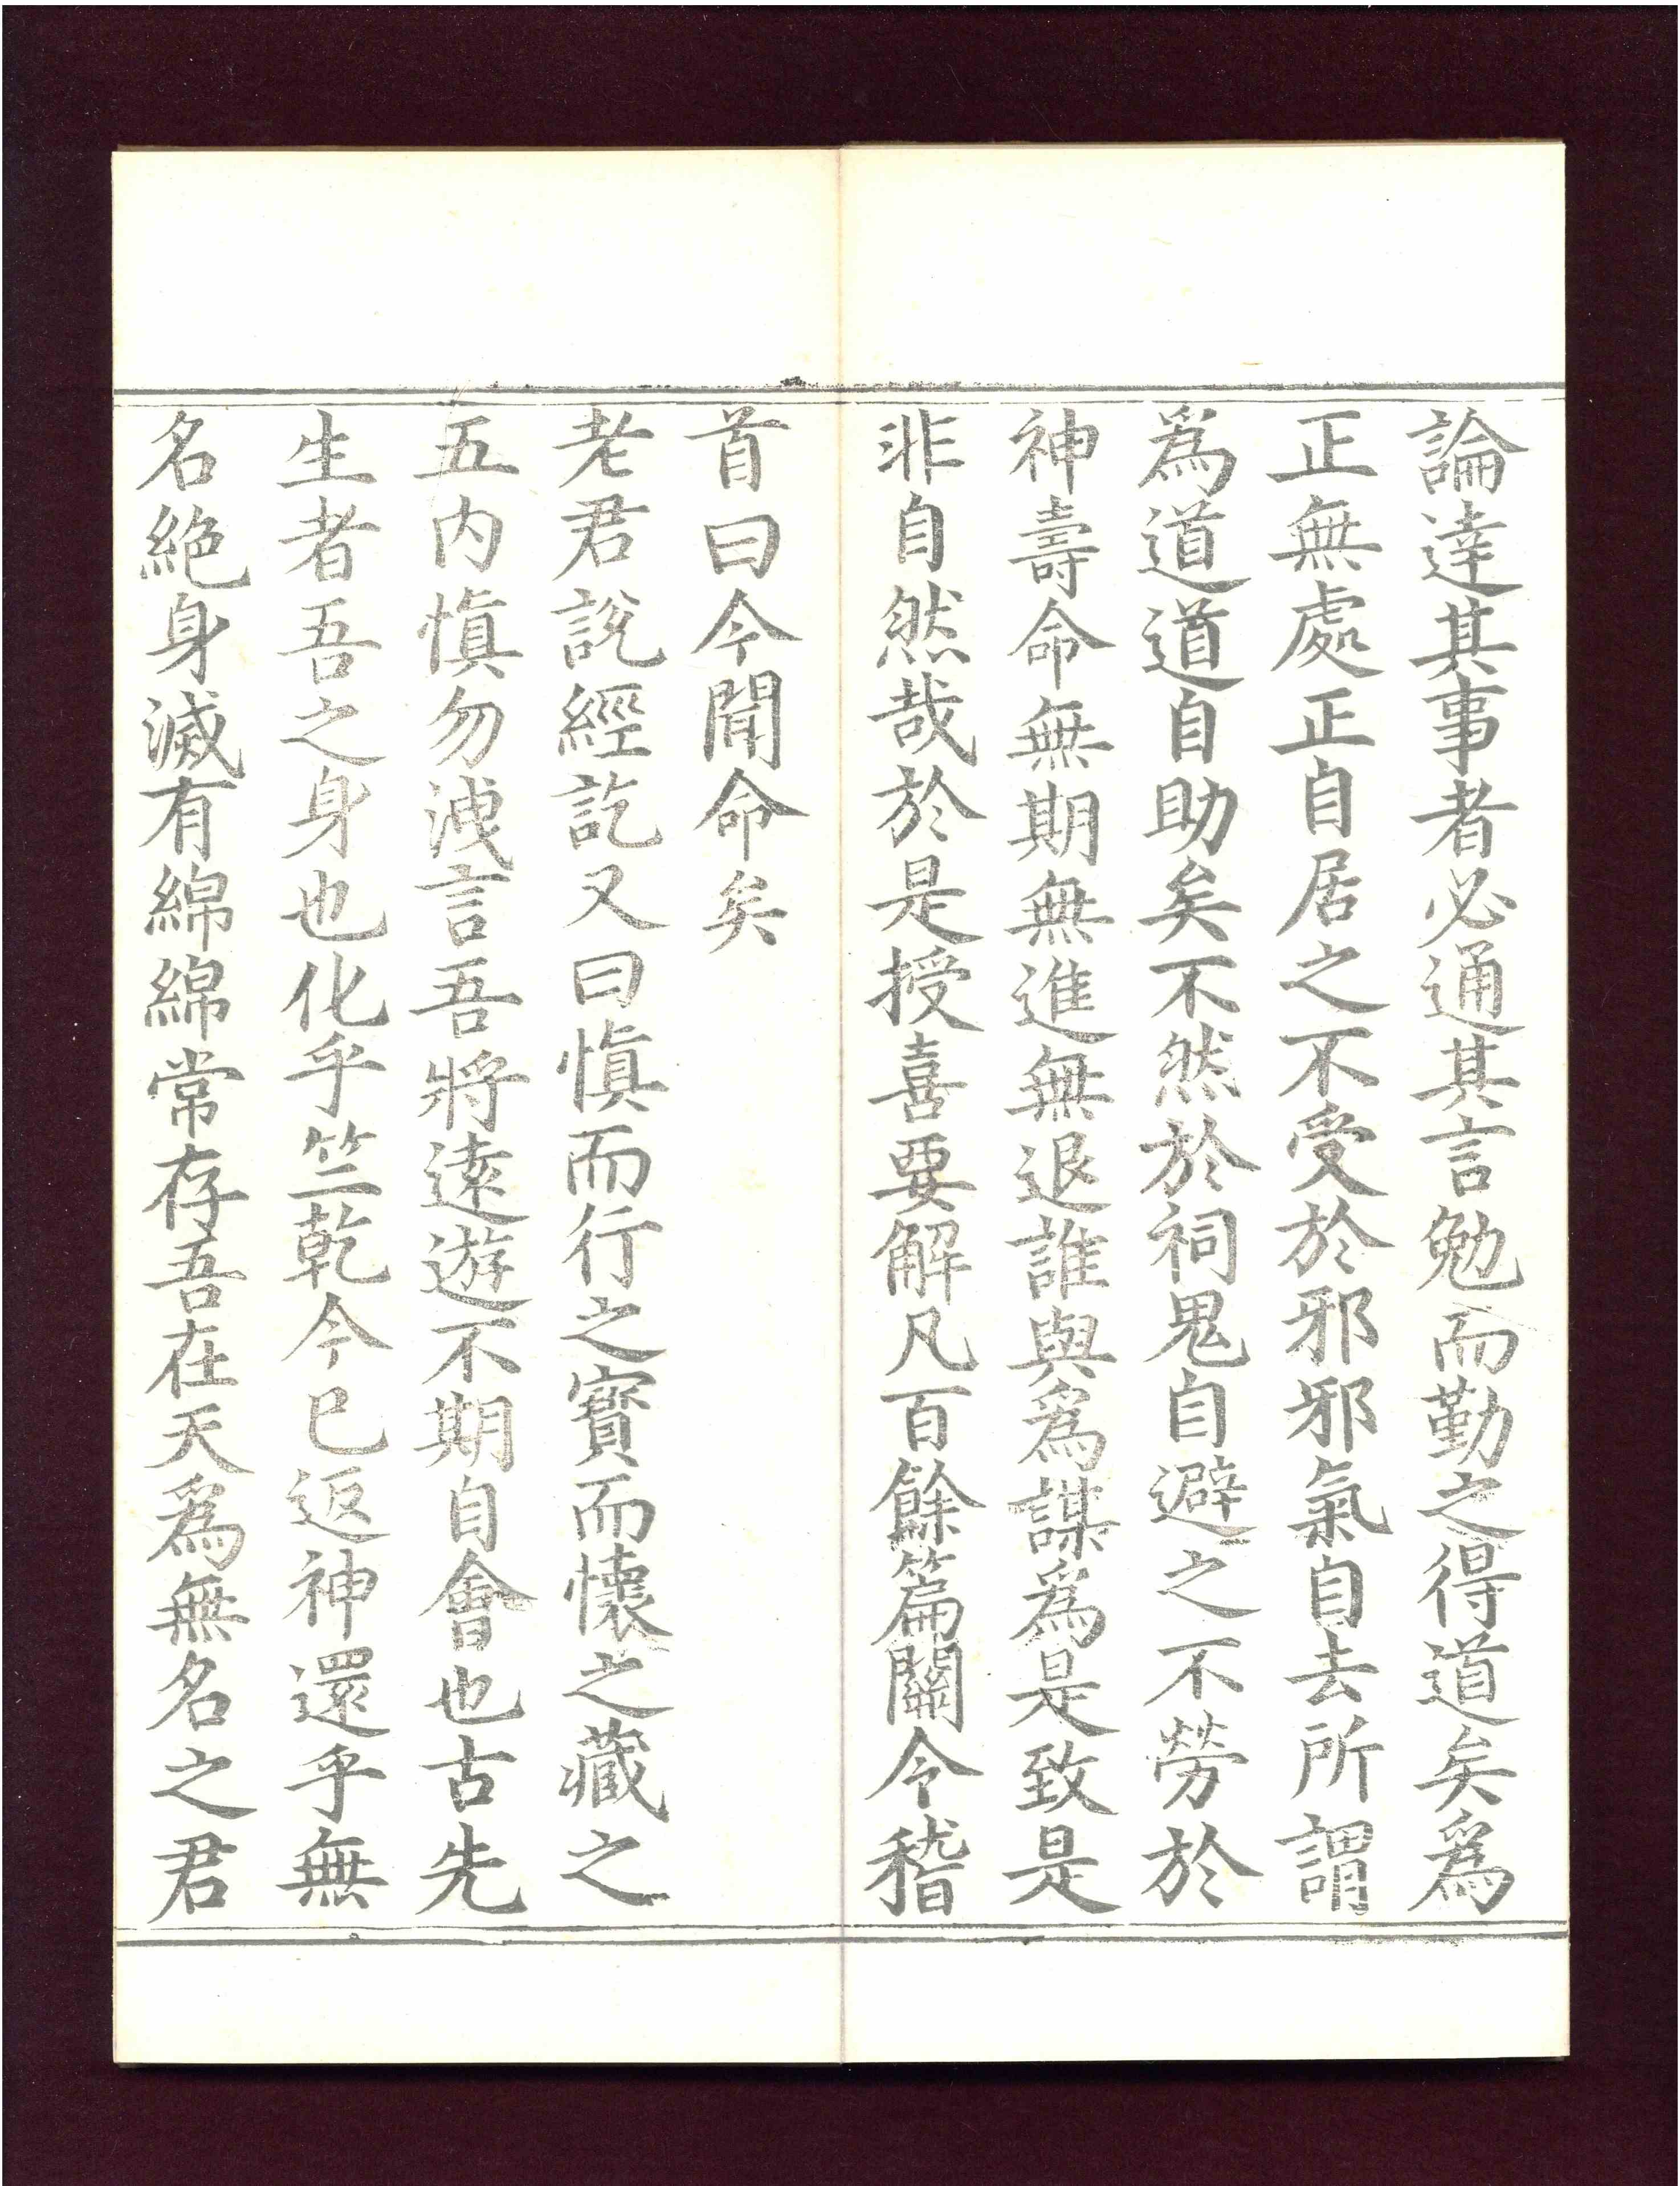 論達其事者必通其言勉而勤之得道矣爲
正無處正自居之不受於邪邪氣自去所謂
爲道道自助矣不然於祠鬼自避之不勞於
神壽命無期無進無退誰與爲謀爲是致是
非自然哉於是授喜要解凡百餘篇關令稽
首曰今聞命矣
老君說經訖又曰慎而行之寳而懷之藏之
五内慎勿洩言吾將逺遊不期自會也古先
生者吾之身也化乎竺乾今已返神還乎無
名絶身滅有綿綿常存吾在天爲無名之君